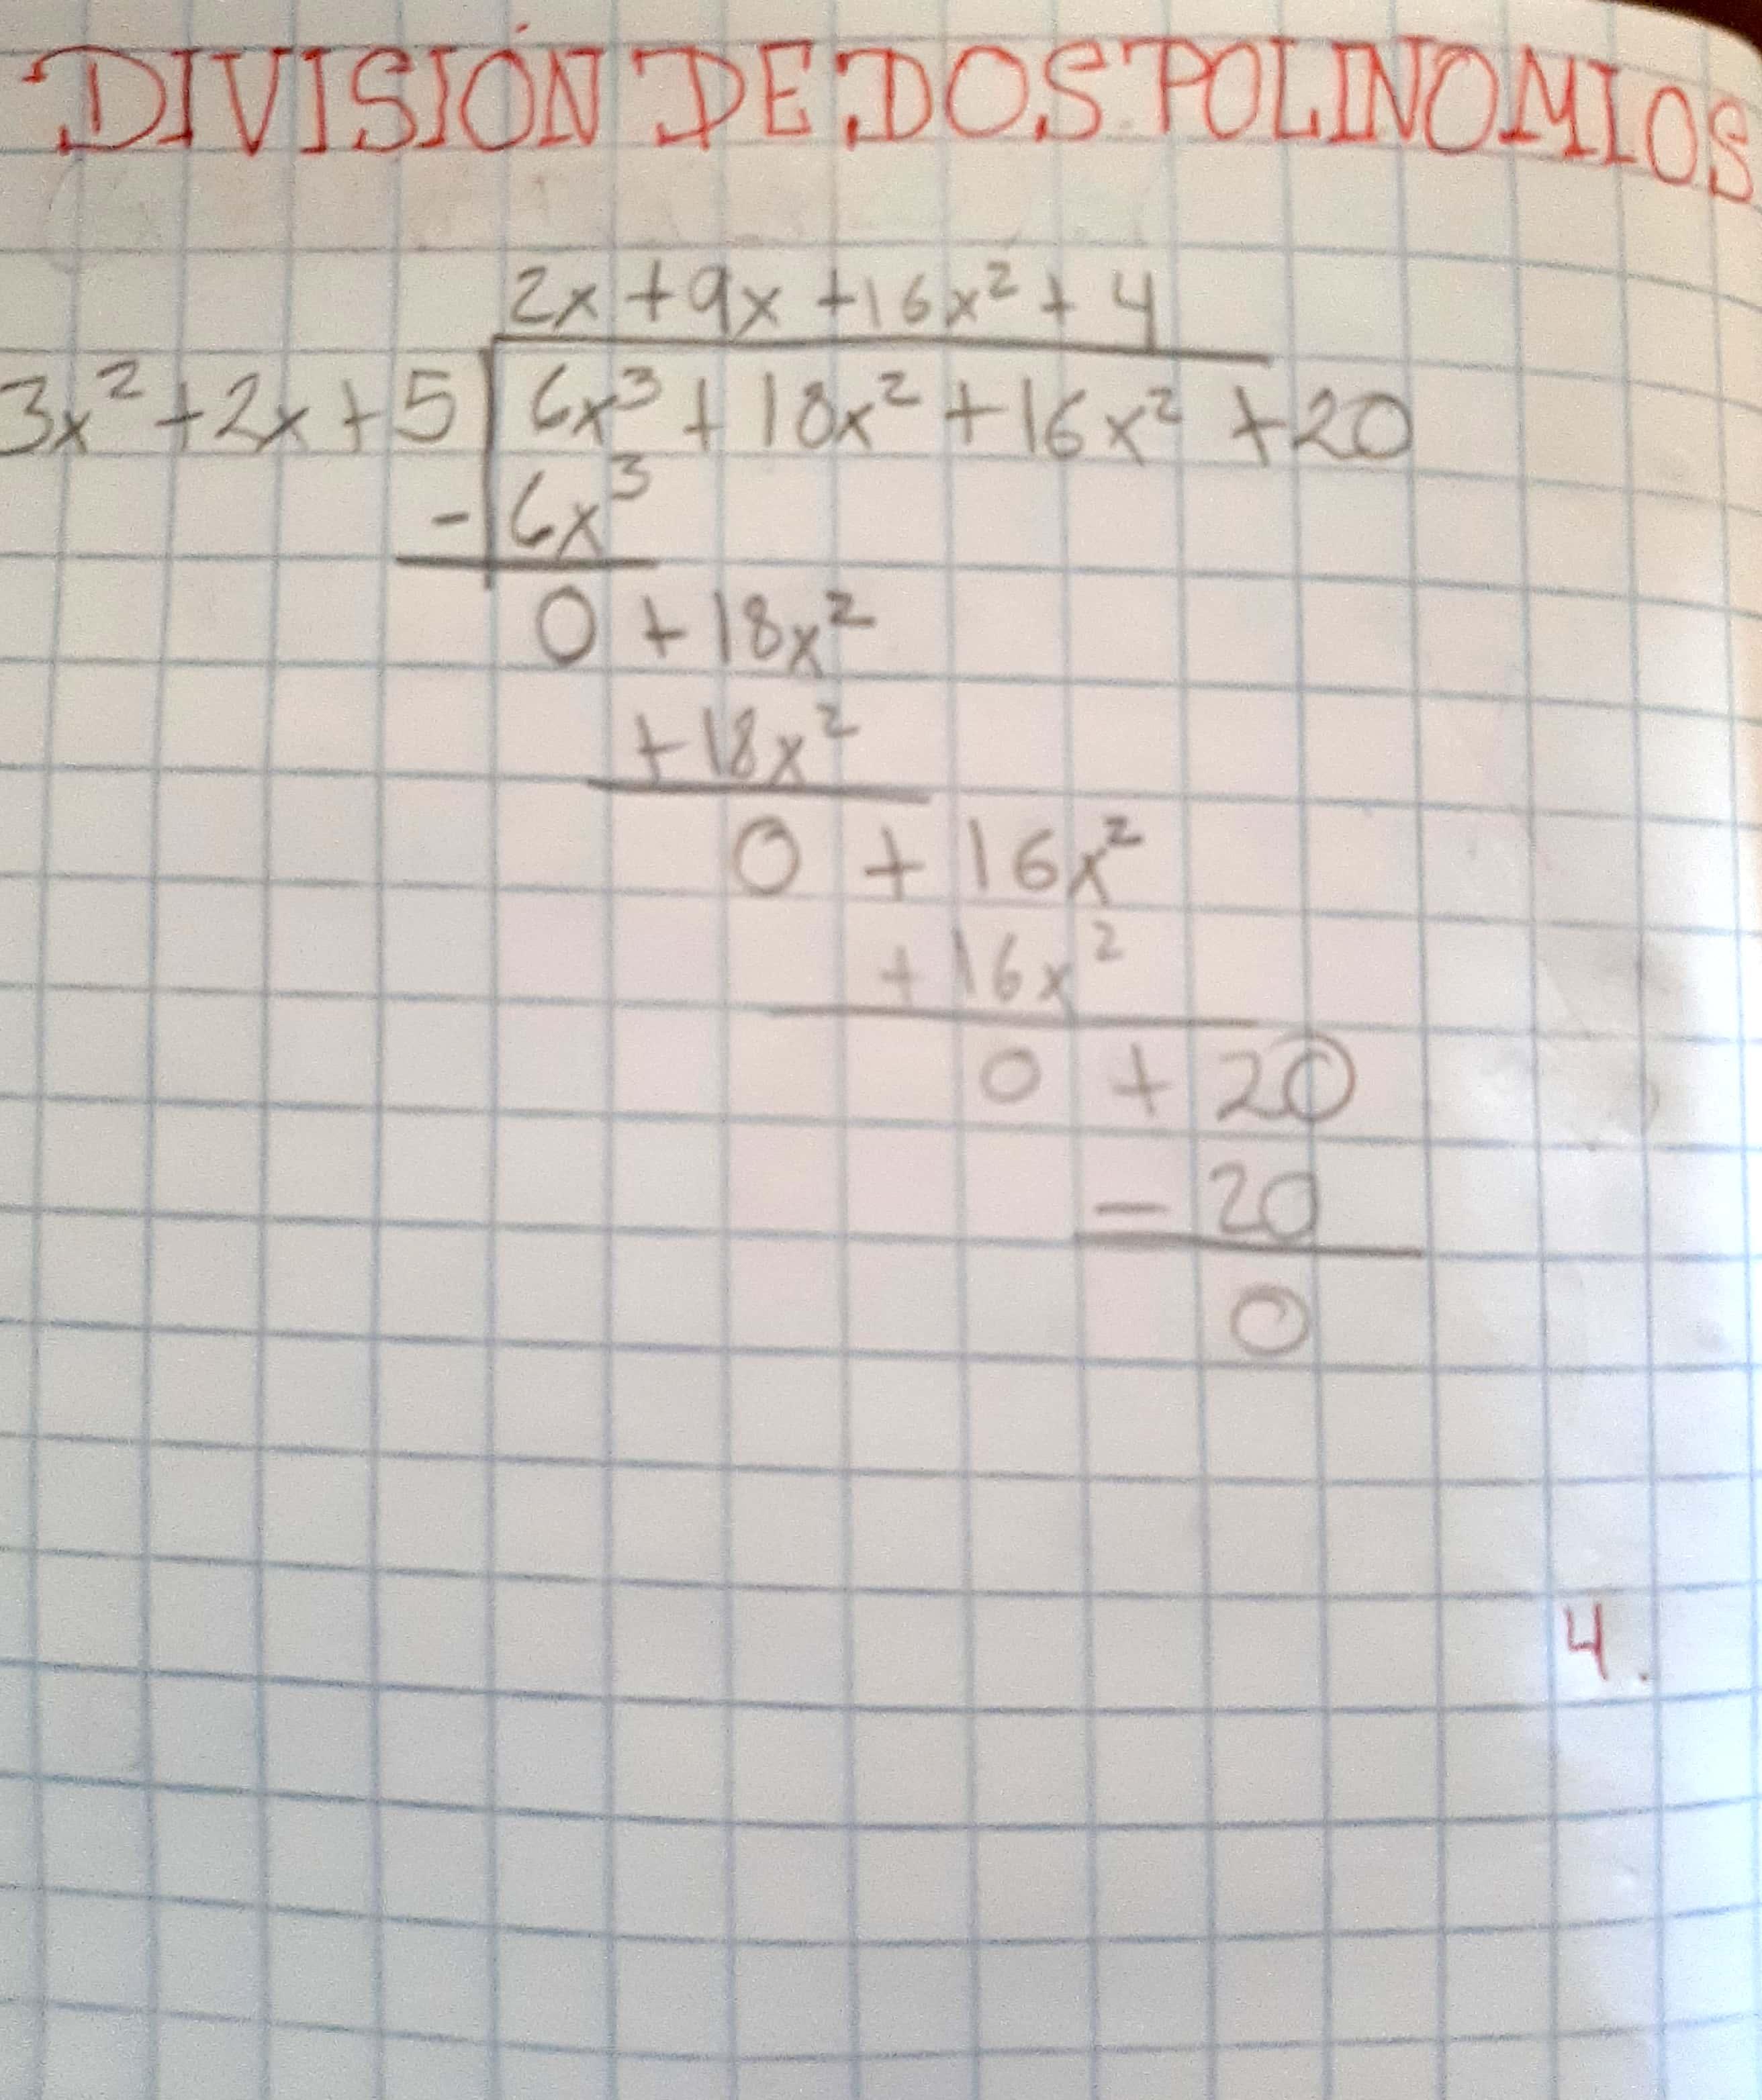 DIVISIÓN DE DOS POLINOMIOS
2x + 9x + 16x² + 4
3x² + 2x + 5 6x³ + 18x² + 16x² + 20
- 6x³
0 + 18x²
+ 18x²
0 + 16x²
+ 16x²
0 + 20
- 20
0
4.